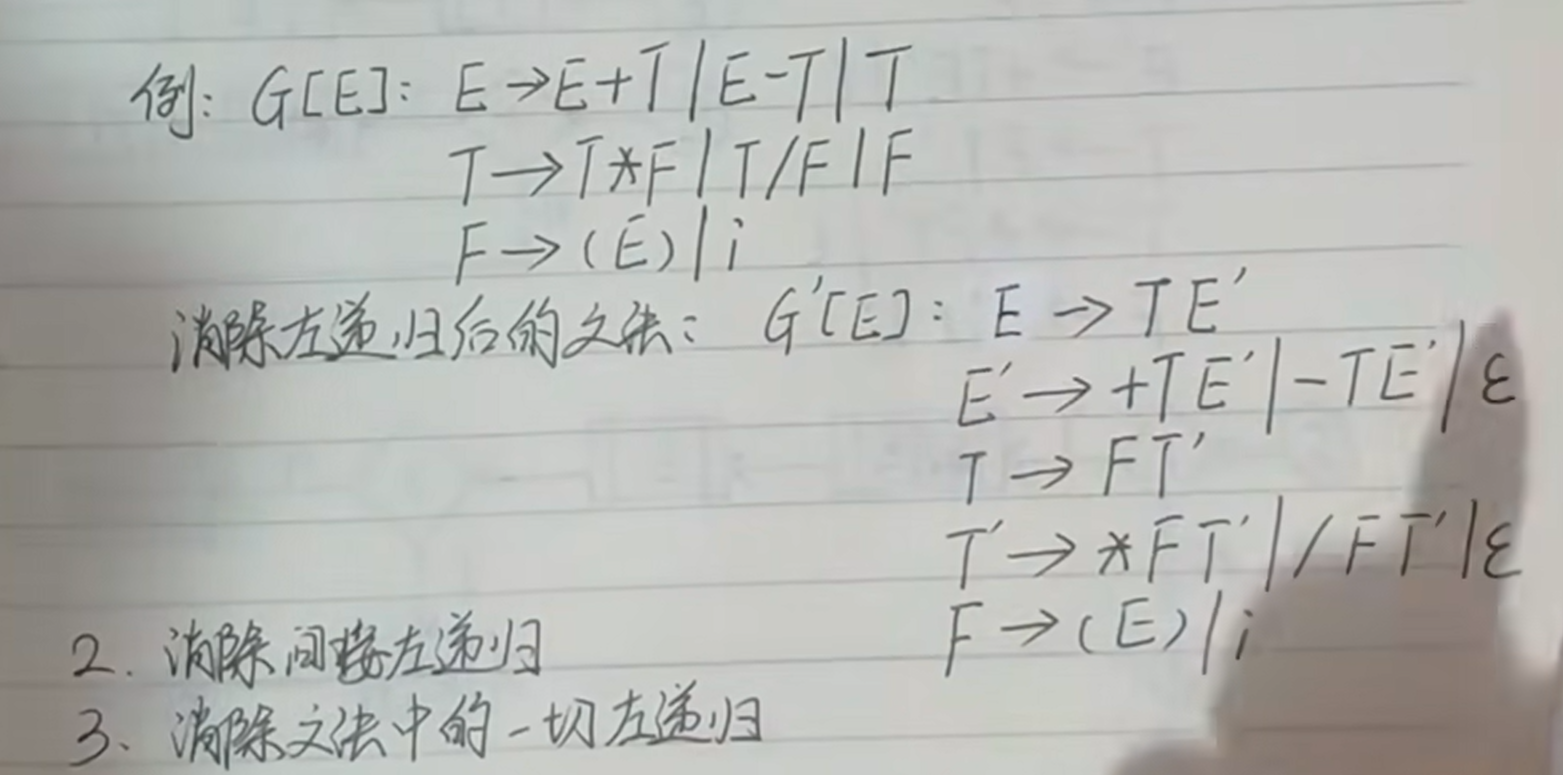 例: G[E]: E→E+T|E-T|T
T→T*F|T/F|F
F→(E)|i
消除左递归后的文法: G'[E]: E→TE'
E'→+TE'|-TE'|ε
T→FT'
T'→*FT'|/FT'|ε
F→(E)|i
2. 消除间接左递归
3、消除文法中的一切左递归